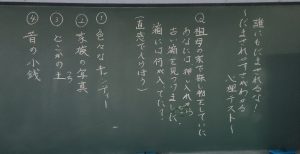 誰にもだまされるな!
〜だまされやすさがわかる
心理テスト〜
Q 祖母の家で探し物をしていた
あなたは押し入れから
古い箱を見つけました。
箱には何が入ってた?
(直感で入れよう)
① 色々なキャンディー
② 家族の写真
③ どこかの土
④ 昔の小銭